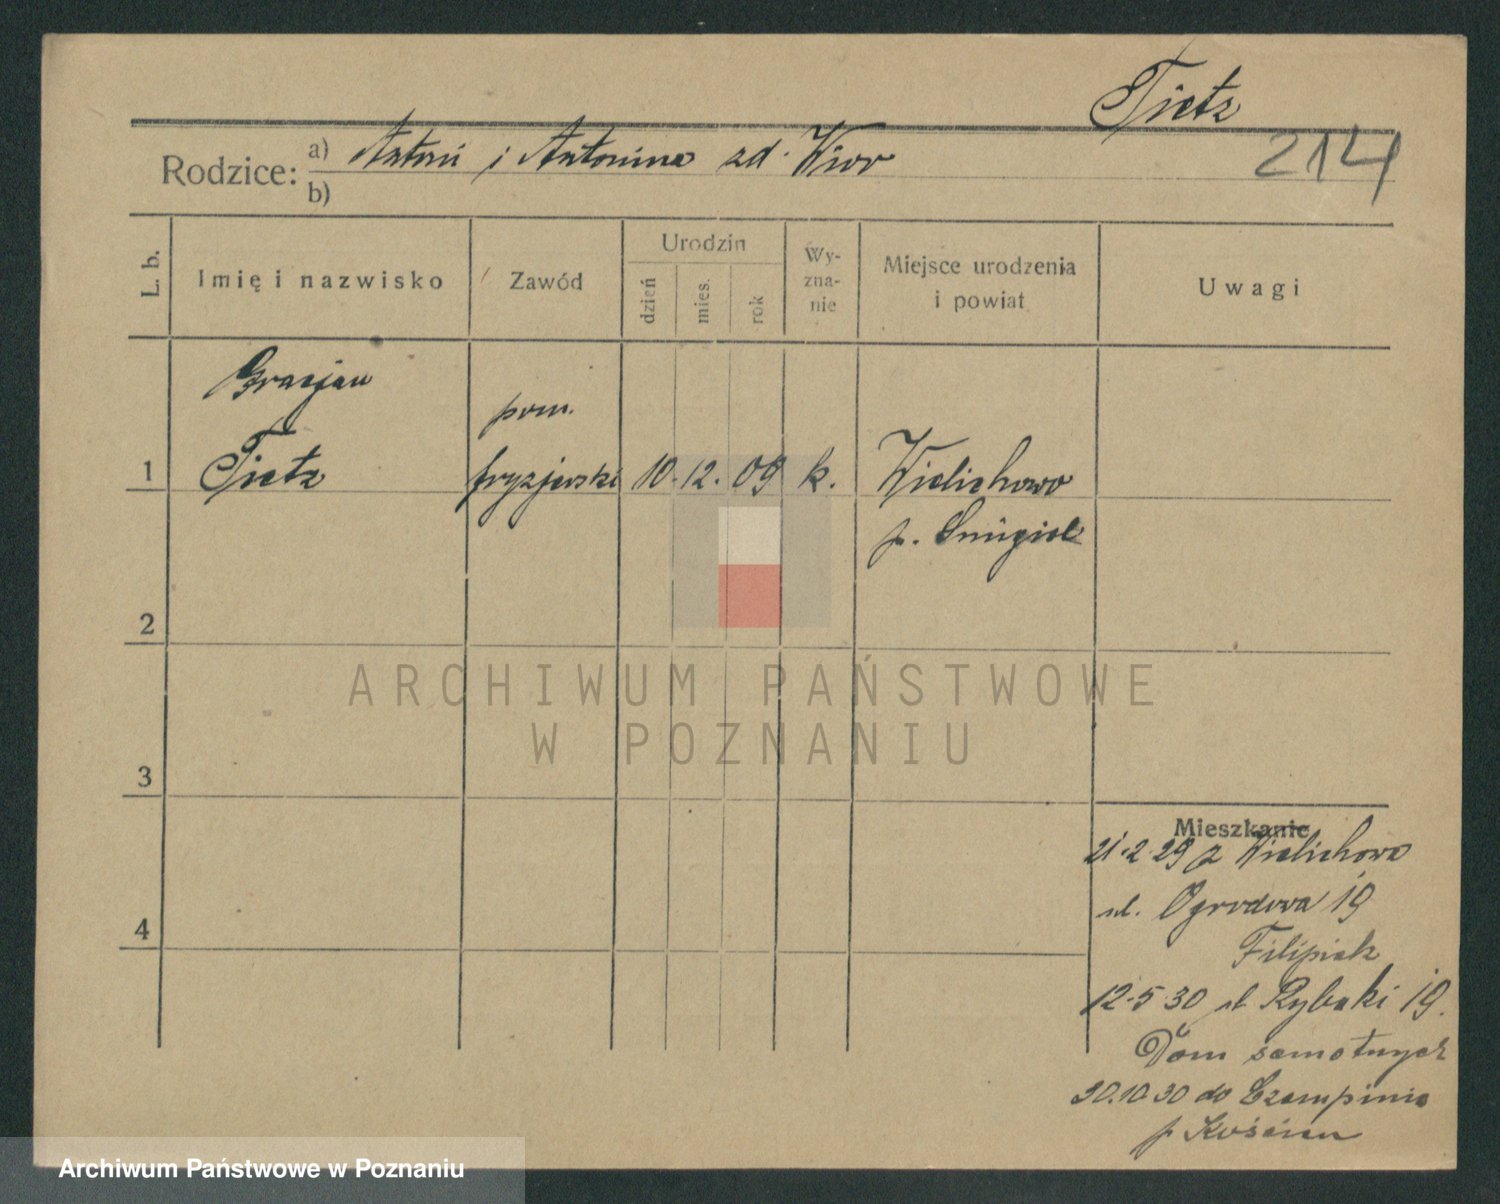 Tietz
214
Rodzice: a) Antoni i Antonina zd. Wior
b)
L. b.
Imię i nazwisko
Zawód
Urodzin
dzień
mies.
rok
Wy-
zna-
nie
Miejsce urodzenia
i powiat
Uwagi
Gracjan
pom.
1 Tietz fryzjerski 10. 12. 09 k. Wielichowo
p. Śmigiel
2
3
4
ARCHIWUM PAŃSTWOWE
W POZNANIU
Mieszkanie
21.2.29 z Wielichowa
ul. Ogrodowa 19
Filipiak
12.5.30 ul Rybaki 19.
Dom samotnych
30.10.30 do Czempinia
p Kościan
Archiwum Państwowe w Poznaniu